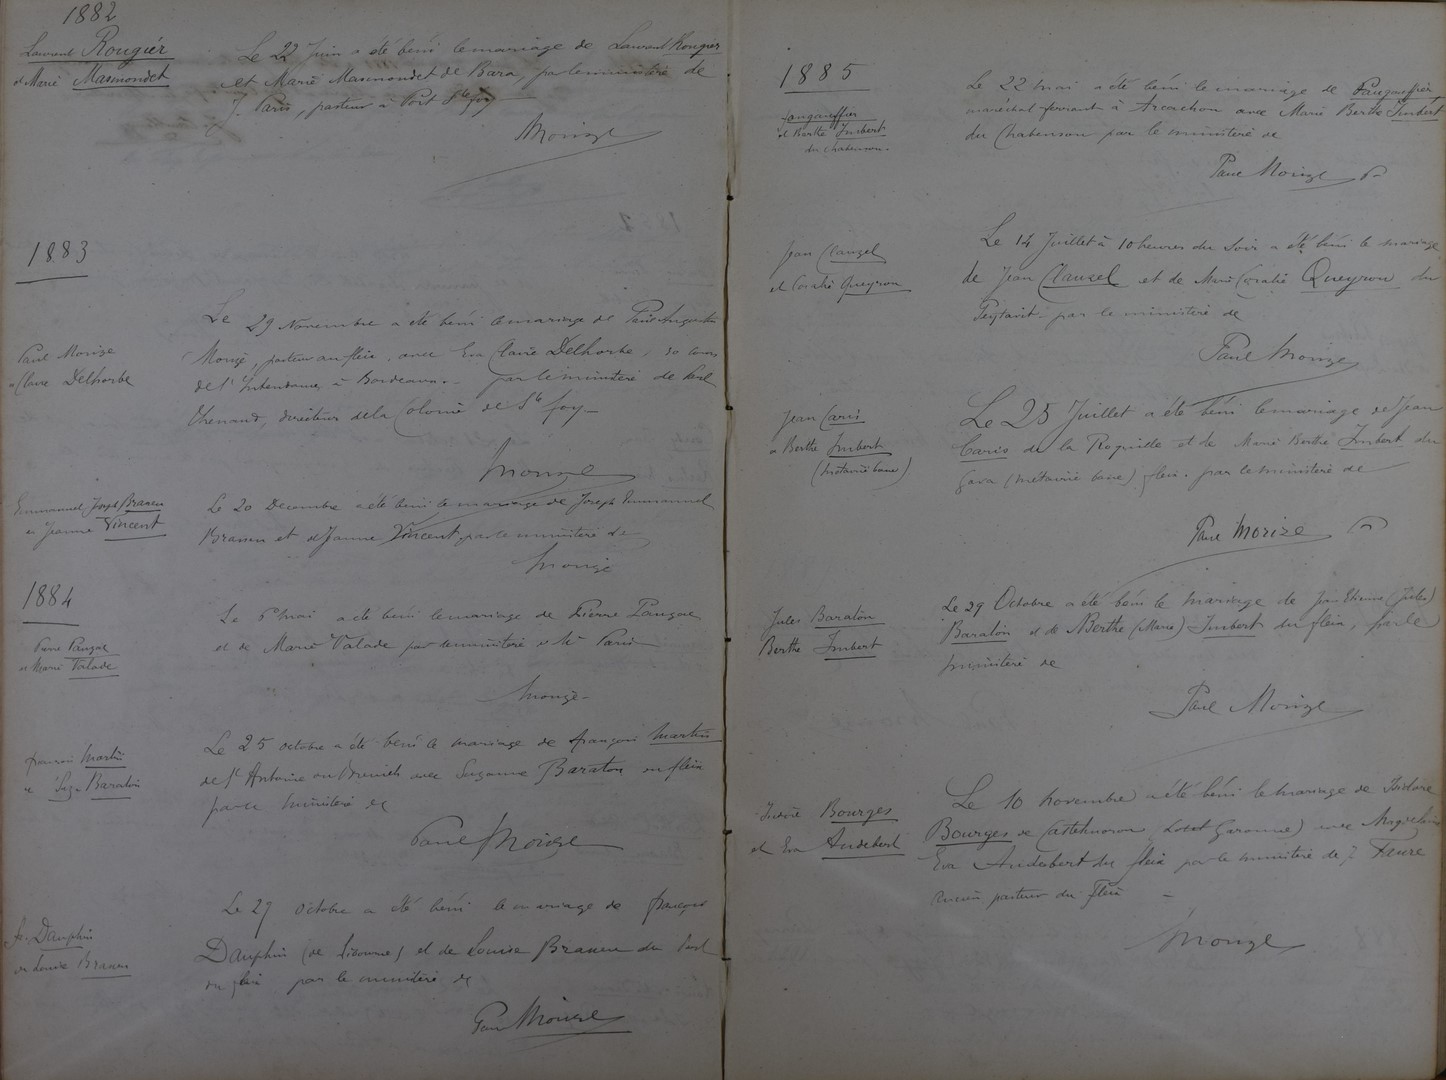 1882
Laurent Rougier
et Marie Masmondet
Le 22 Juin a été béni le mariage de Laurent Rougier
et Marie Masmondet de Bara, par le ministère de
J. Paris, pasteur à Port Ste foy
Morize
1883
Paul Morize
Claire Delhorbe
Le 29 Novembre a été béni le mariage de Paul Augustin
Morize, pasteur au fleix, avec Eva Claire Delhorbe, 30 cours
de l'Intendance, à Bordeaux. par le ministère de
directeur de la Colonie de Ste foy
Morize
Emmanuel Joseph
et Jeanne Vincent
Le 20 Décembre a été béni le mariage de Joseph Emmanuel
et de Jeanne Vincent, par le ministère de
Morize
1884
Pierre Pauzac
et Marie Valade
Le 6 Mai a été béni le mariage de Pierre Pauzac
et de Marie Valade par le ministère de Mr Paris
Morize
françois Martin
et Suz. Baraton
Le 25 octobre a été béni le mariage de françois Martin
de St Antoine du Breuilh avec Suzanne Baraton du fleix
par le ministère de
Paul Morize
fs. Dauphin
et Louise
Le 29 octobre a été béni le mariage de françois
Dauphin (de Libourne) et de Louise du
du fleix par le ministère de
Paul Morize
1885
et Berthe Imbert
du Chabenson.
Le 22 Mai a été béni le mariage de
maréchal-ferrant à Arcachon avec Marie Berthe Imbert
du Chabenson par le ministère de
Paul Morize
Jean Clauzel
et Coralie Queyrou
Le 14 Juillet à 10 heures du Soir a été béni le mariage
de Jean Clauzel et de Marie Coralie Queyrou du
par le ministère de
Paul Morize
Jean Caris
Berthe Imbert
(Métairie basse)
Le 25 Juillet a été béni le mariage de Jean
Caris de la Roquille et de Marie Berthe Imbert du
Gava (Métairie basse) fleix. par le ministère de
Paul Morize
Jules Baraton
Berthe Imbert
Le 29 Octobre a été béni le mariage de Jean Etienne (Jules)
Baraton et de Berthe (Marie) Imbert du fleix, par le
ministère de
Paul Morize
Isidore Bourges
et Eva Audebert
Le 10 novembre a été béni le mariage de Isidore
Bourges de Castelmoron (Lot et Garonne) avec Magdelaine
Eva Audebert du fleix par le ministère de J. Faure
ancien pasteur du fleix
Morize